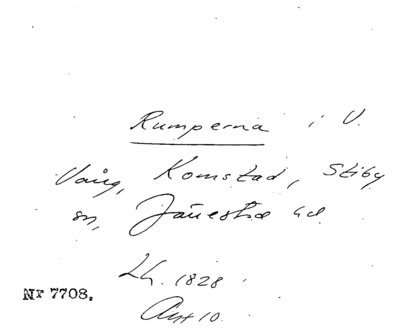 Rumperna i V.
Vång, Komstad, Stiby
sn, Järrestad hd
Lh. 1828
Akt 10
Nr 7708.